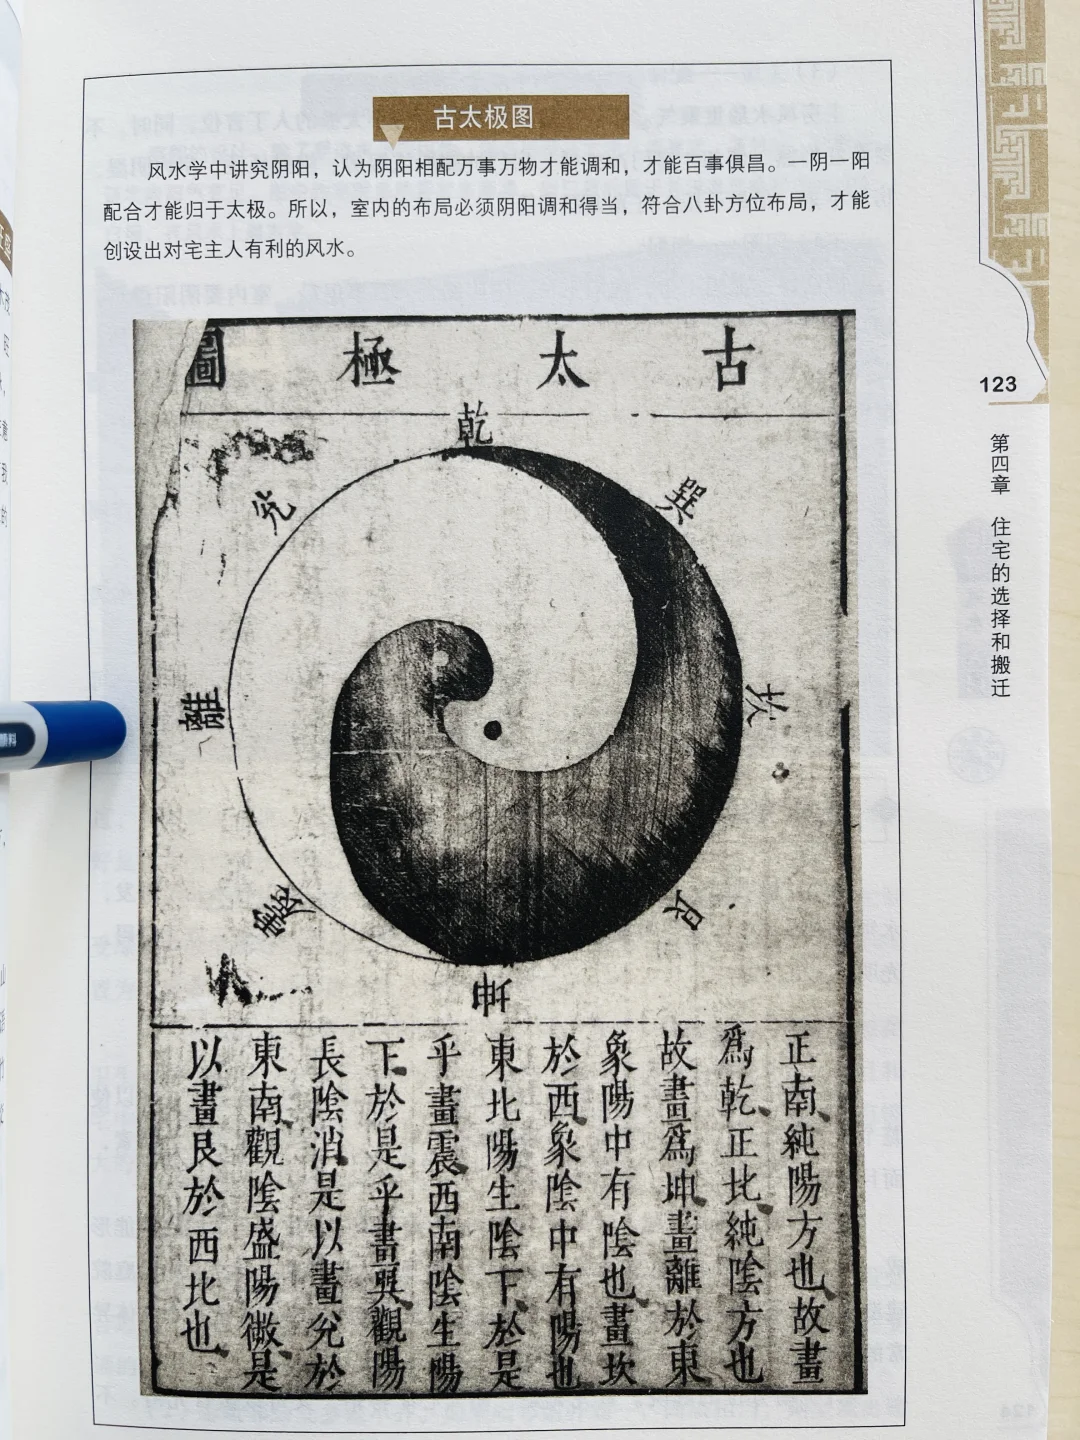 古太极图
风水学中讲究阴阳，认为阴阳相配万事万物才能调和，才能百事俱昌。一阴一阳
配合才能归于太极。所以，室内的布局必须阴阳调和得当，符合八卦方位布局，才能
创设出对宅主人有利的风水。
古太極圖
乾
兌
巽
離
坎
震
艮
坤
正南純陽方也故畫
爲乾正北純陰方也
故畫爲坤畫離於東
象陽中有陰也畫坎
於西象陰中有陽也
東北陽生陰下於是
乎畫震西南陰生陽
下於是乎畫巽觀陽
長陰消是以畫兌於
東南觀陰盛陽微是
以畫艮於西北也
123
第四章 住宅的选择和搬迁